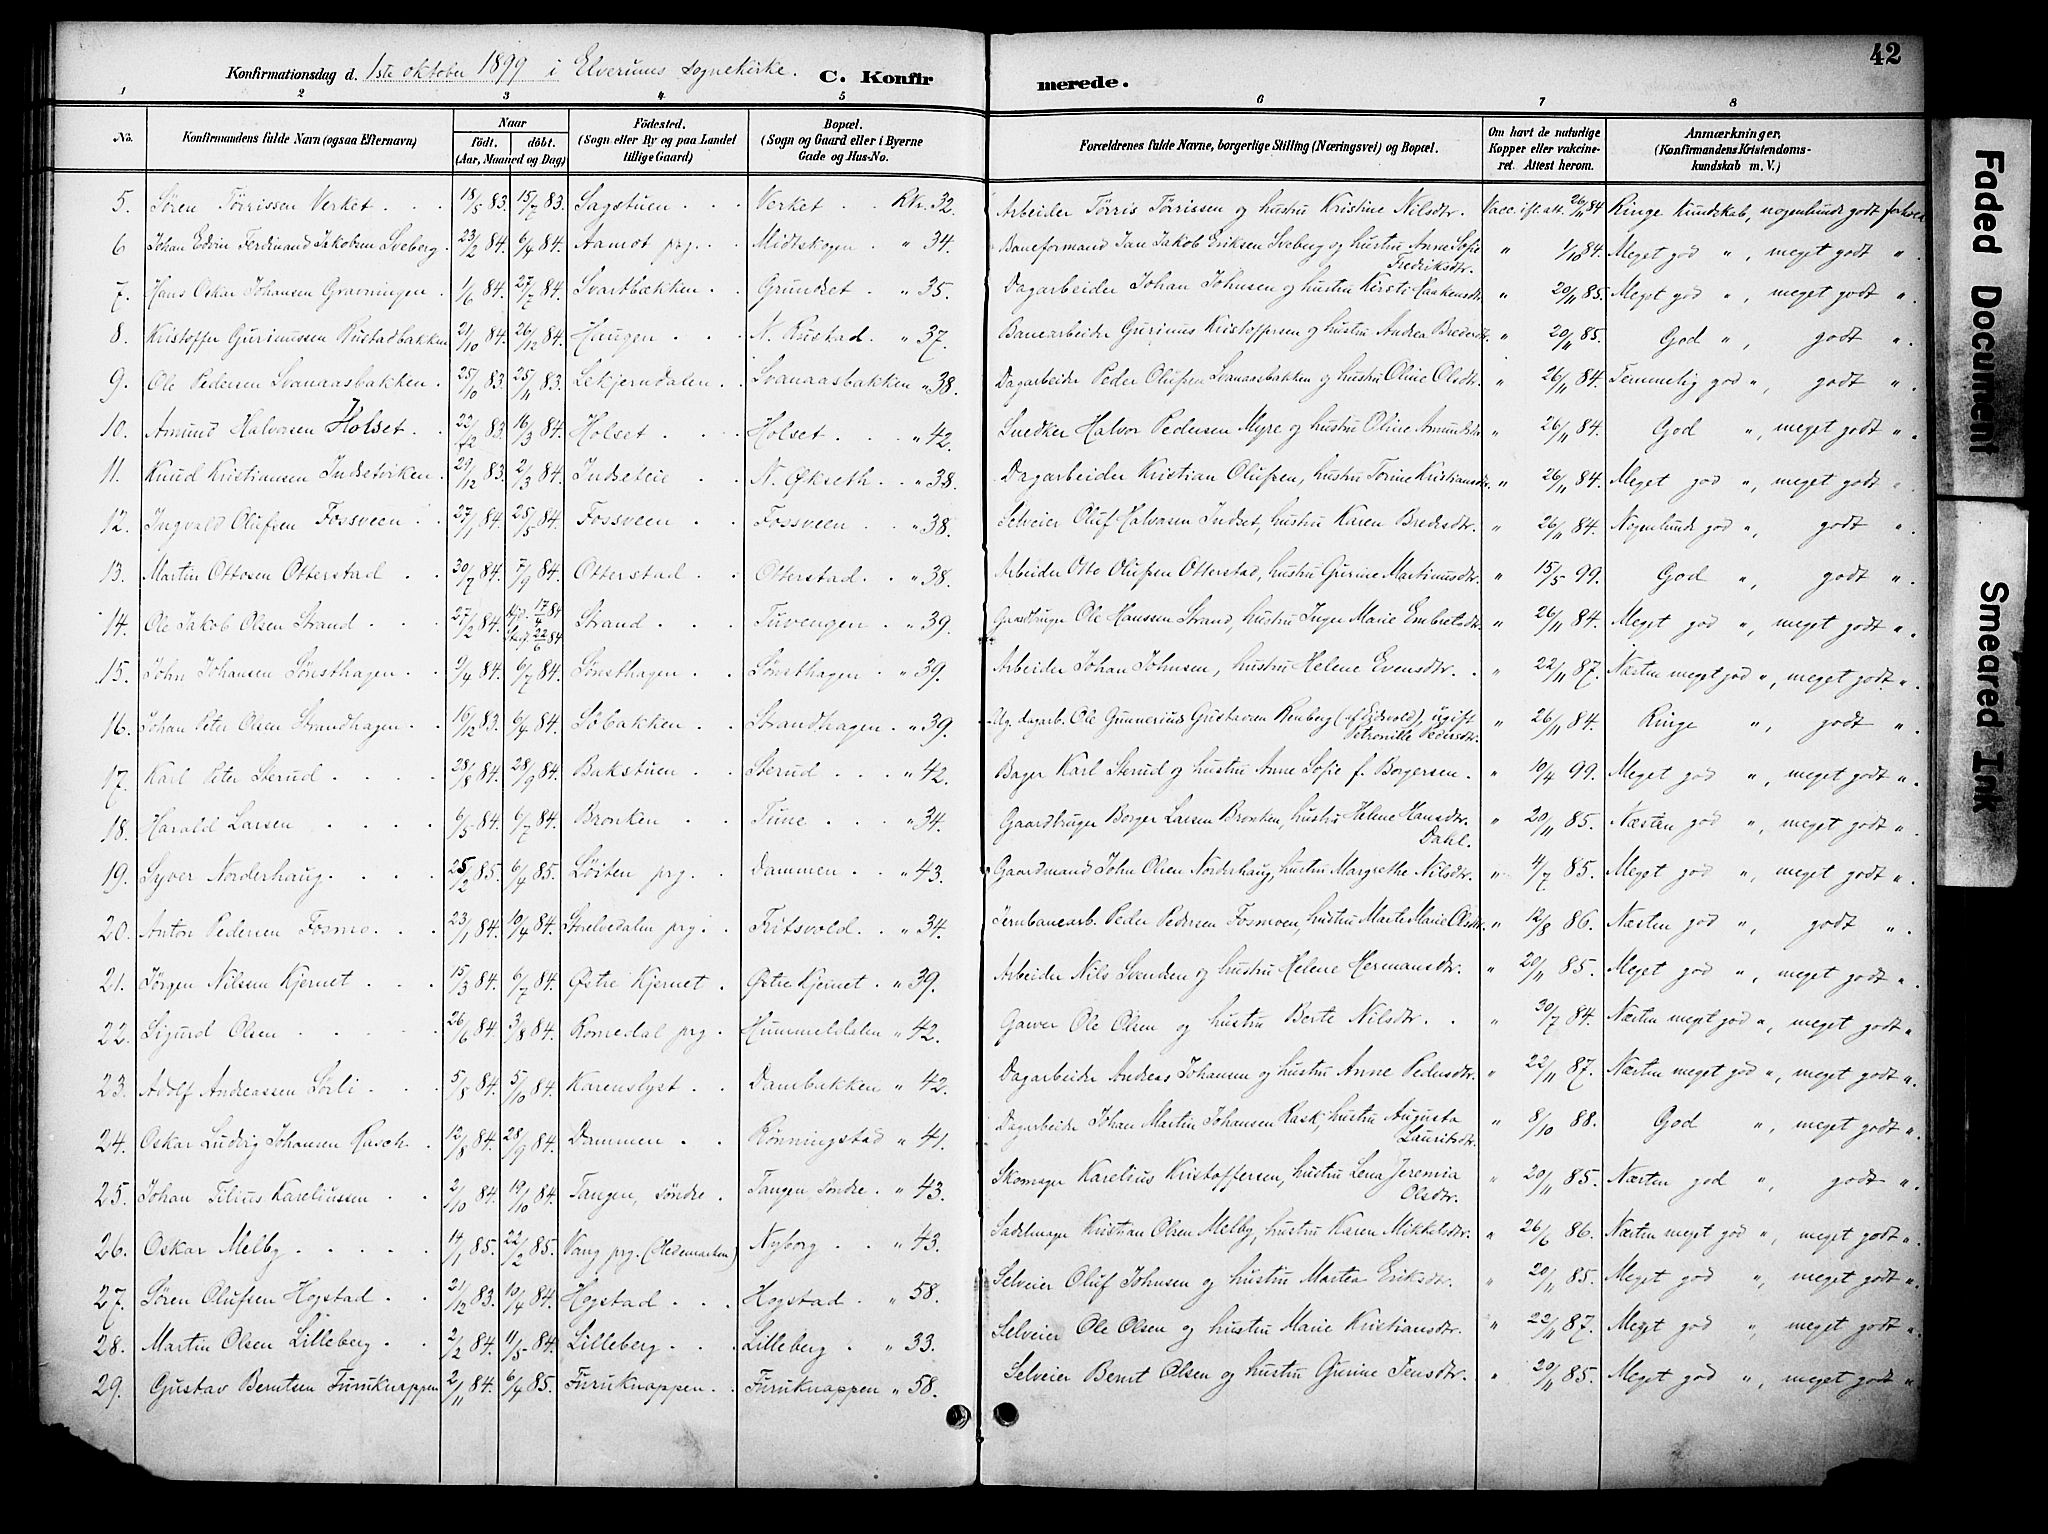 42
Konfirmationsdag d. 1ste oktober 1899 i Elverums sognekirke. C. Konfirmerede.
1 2 3 4 5 6 7 8
No. Konfirmandens fulde Navn (ogsaa Efternavn) Naar født. døbt. (Aar, Maaned og Dag) Fødested. (Sogn eller By og paa Landet tillige Gaard) Bopæl. (Sogn og Gaard eller i Byerne Gade og Hus-No. Forældrenes fulde Navne, borgerlige Stilling (Næringsvei) og Bopæl. Om havt de naturlige Kopper eller vakcineret. Attest herom. Anmærkninger. (Konfirmandens Kristendomskundskab m. V.)
5. Søren Tørrissen Verket 18/5 83. 15/7 83. Sagstuen Verket Rkr. 32. Arbeider Tørris Tørrissen og hustru Kristine Nilsdtr. Vacc. ifl. att. 26/11 84 Ringe Kundskab, nogenlunde godt forhold
6 Johan Edvin Ferdinand Jakobsen Sveberg 23/2 84. 6/4 84. Aamot prg. Midtskogen " 34. Baneformand Jan Jakob Eriksen Sveberg og hustru Anne Sofie Fredriksdtr. " 1/10 84. Meget god ", meget godt ".
7. Hans Oskar Johansen Gravningen 1/6 84. 27/7 84. Svartbækken Grundset " 35. Dagarbeider Johan Johnsen og hustru Kirsti Haakensdtr " 20/11 85. Meget god ", meget godt ".
8. Kristoffer Gurinussen Rustadbakken 21/10 84. 26/12 84. Haugen N. Rustad. " 37. Banearbeider Gurinus Kristoffersen og hustru Andrea Bredesdtr. " 20/11 85. God ", godt ".
9. Ole Pedersen Svanaasbakken. 25/10 83. 25/11 83. Lekjerndalen Svanaasbakken " 38. Dagarbeider Peder Olufsen Svanaasbakken og hustru Oline Olsdtr. " 26/11 84. Temmelig god ", godt ".
10. Amund Halvorsen Holset 22/12 83. 16/3 84. Holset Holset " 42. Snedker Halvor Pedersen Myre og hustru Oline Amundsdtr " 26/11 84. God ", meget godt ".
11. Knud Kristiansen Indsetviken 29/12 83 2/3 84. Indseteie N. Økseth " 38. Dagarbeider Kristian Olufsen, hustru Torine Kristiansdtr. " 26/11 84. Meget god ", meget godt "
12. Ingvald Olufsen Fossveen 27/1 84. 25/5 84. Fossveen Fossveen " 38. Selveier Oluf Halvorsen Indset, hustru Karen Bredesdtr. " 26/11 84. Nogenlunde god ", godt ".
13. Martin Ottosen Otterstad 30/7 84. 7/9 84. Otterstad Otterstad. " 38. Arbeider Otto Olufsen Otterstad, hustru Gurine Martinusdtr. " 15/5 99. God ", godt ".
14. Ole Jakob Olsen Strand 27/2 84. Hjd. 17/4 84 Stadf. 22/6 84 Strand Tuvengen " 39. Gaardbruger Ole Hanssen Strand, hustru Inger Marie Embretsdtr. " 26/11 84. Meget god ", meget godt ".
15. John Johansen Sønsthagen 9/4 84. 6/7 84. Sønsthagen Sønsthagen " 39. Arbeider Johan Johnsen, hustru Helene Evensdtr. " 22/11 87. Næsten meget god ", meget godt ".
16. Johan Peter Olsen Strandhagen 16/12 83. 6/4 84. Søbakken Strandhagen " 39. Ug. dagarb. Ole Gunnerius Gustavsen Renberg (af Eidsvold), ugift Petronille Pedersdtr. " 26/11 84. Ringe ", godt ".
17. Karl Peter Sterud 28/8 84. 28/9 84. Bakstuen Sterud " 42. Bager Karl Sterud og hustru Anne Sofie f. Borgersen. " 10/4 99. Meget god ", meget godt ".
18. Harald Larsen 6/5 84. 6/7 84. Bronken Tune " 34. Gaardbruger Borger Larsen Bronken, hustru Helene Hansdtr. Dahl. " 20/11 85. Næsten god ", meget godt ".
19. Syver Norderhaug 25/2 85. 6/4 85. Løiten prg. Dammen " 43. Gaardmand John Olsen Norderhaug, hustru Margrethe Nilsdtr. " 4/7 85. Meget god ", meget godt ".
20. Anton Pedersen Fosmo 23/1 84. 10/4 84. Storelvedalen prg. Fritsvold. " 34. Jernbanearb. Peder Pedersen Fosmoen, hustru Marte Marie Olsdtr. " 12/8 86. Næsten god ", godt ".
21. Jørgen Nilsen Kjernet 15/3 84. 6/7 84. Østre Kjernet Østre Kjernet " 39. Arbeider Nils Svendsen og hustru Helene Hermansdtr. " 20/11 85. Meget god ", meget godt ".
22. Sigurd Olsen 26/6 84. 3/8 84. Romedal prg. Hummeldalen " 42. Garver Ole Olsen og hustru Berte Nilsdtr. " 30/7 84. Næsten meget god ", meget godt ".
23. Adolf Andreassen Sørli 5/8 84. 5/10 84. Karenslyst Dambakken " 42. Dagarbeider Andreas Johansen og hustru Anne Pedersdtr. " 22/11 87. Næsten meget god ", meget godt ".
24. Oskar Ludvig Johansen Rasch 12/8 84. 28/9 84. Dammen Rønningstad " 41. Dagarbeider Johan Martin Johansen Rask, hustru Augusta Lauritsdtr. " 8/10 88. God ", meget godt ".
25. Johan Tilius Kareliussen 2/10 84. 19/10 84. Tangen, søndre Tangen søndre " 43. Skomager Karelius Kristoffersen, hustru Lena Jeremia Olsdtr. " 20/11 85. Næsten god ", godt ".
26. Oskar Melby 14/1 85. 22/2 85. Vang prg. (Hedemarken) Nyborg " 43. Sadelmager Kristian Olsen Melby, hustru Karen Mikkelsdtr. " 26/6 86. Næsten meget god ", meget godt ".
27. Søren Olufsen Hogstad 21/12 83. 10/4 84. Hogstad Hogstad " 58. Selveier Oluf Johnsen og hustru Martea Eriksdtr. " 20/11 85. Meget god ", meget godt "
28. Martin Olsen Lilleberg 2/2 84. 11/5 84. Lilleberg Lilleberg " 33. Selveier Ole Olsen og hustru Marie Kristiansdtr. " 22/11 87. Meget god ", meget godt ".
29. Gustav Berntsen Furuknappen 2/11 84. 6/4 85. Furuknappen Furuknappen " 58. Selveier Bernt Olsen og hustru Gunine Jensdtr. " 20/11 85. Meget god ", meget godt "
Faded Document
Smeared Ink